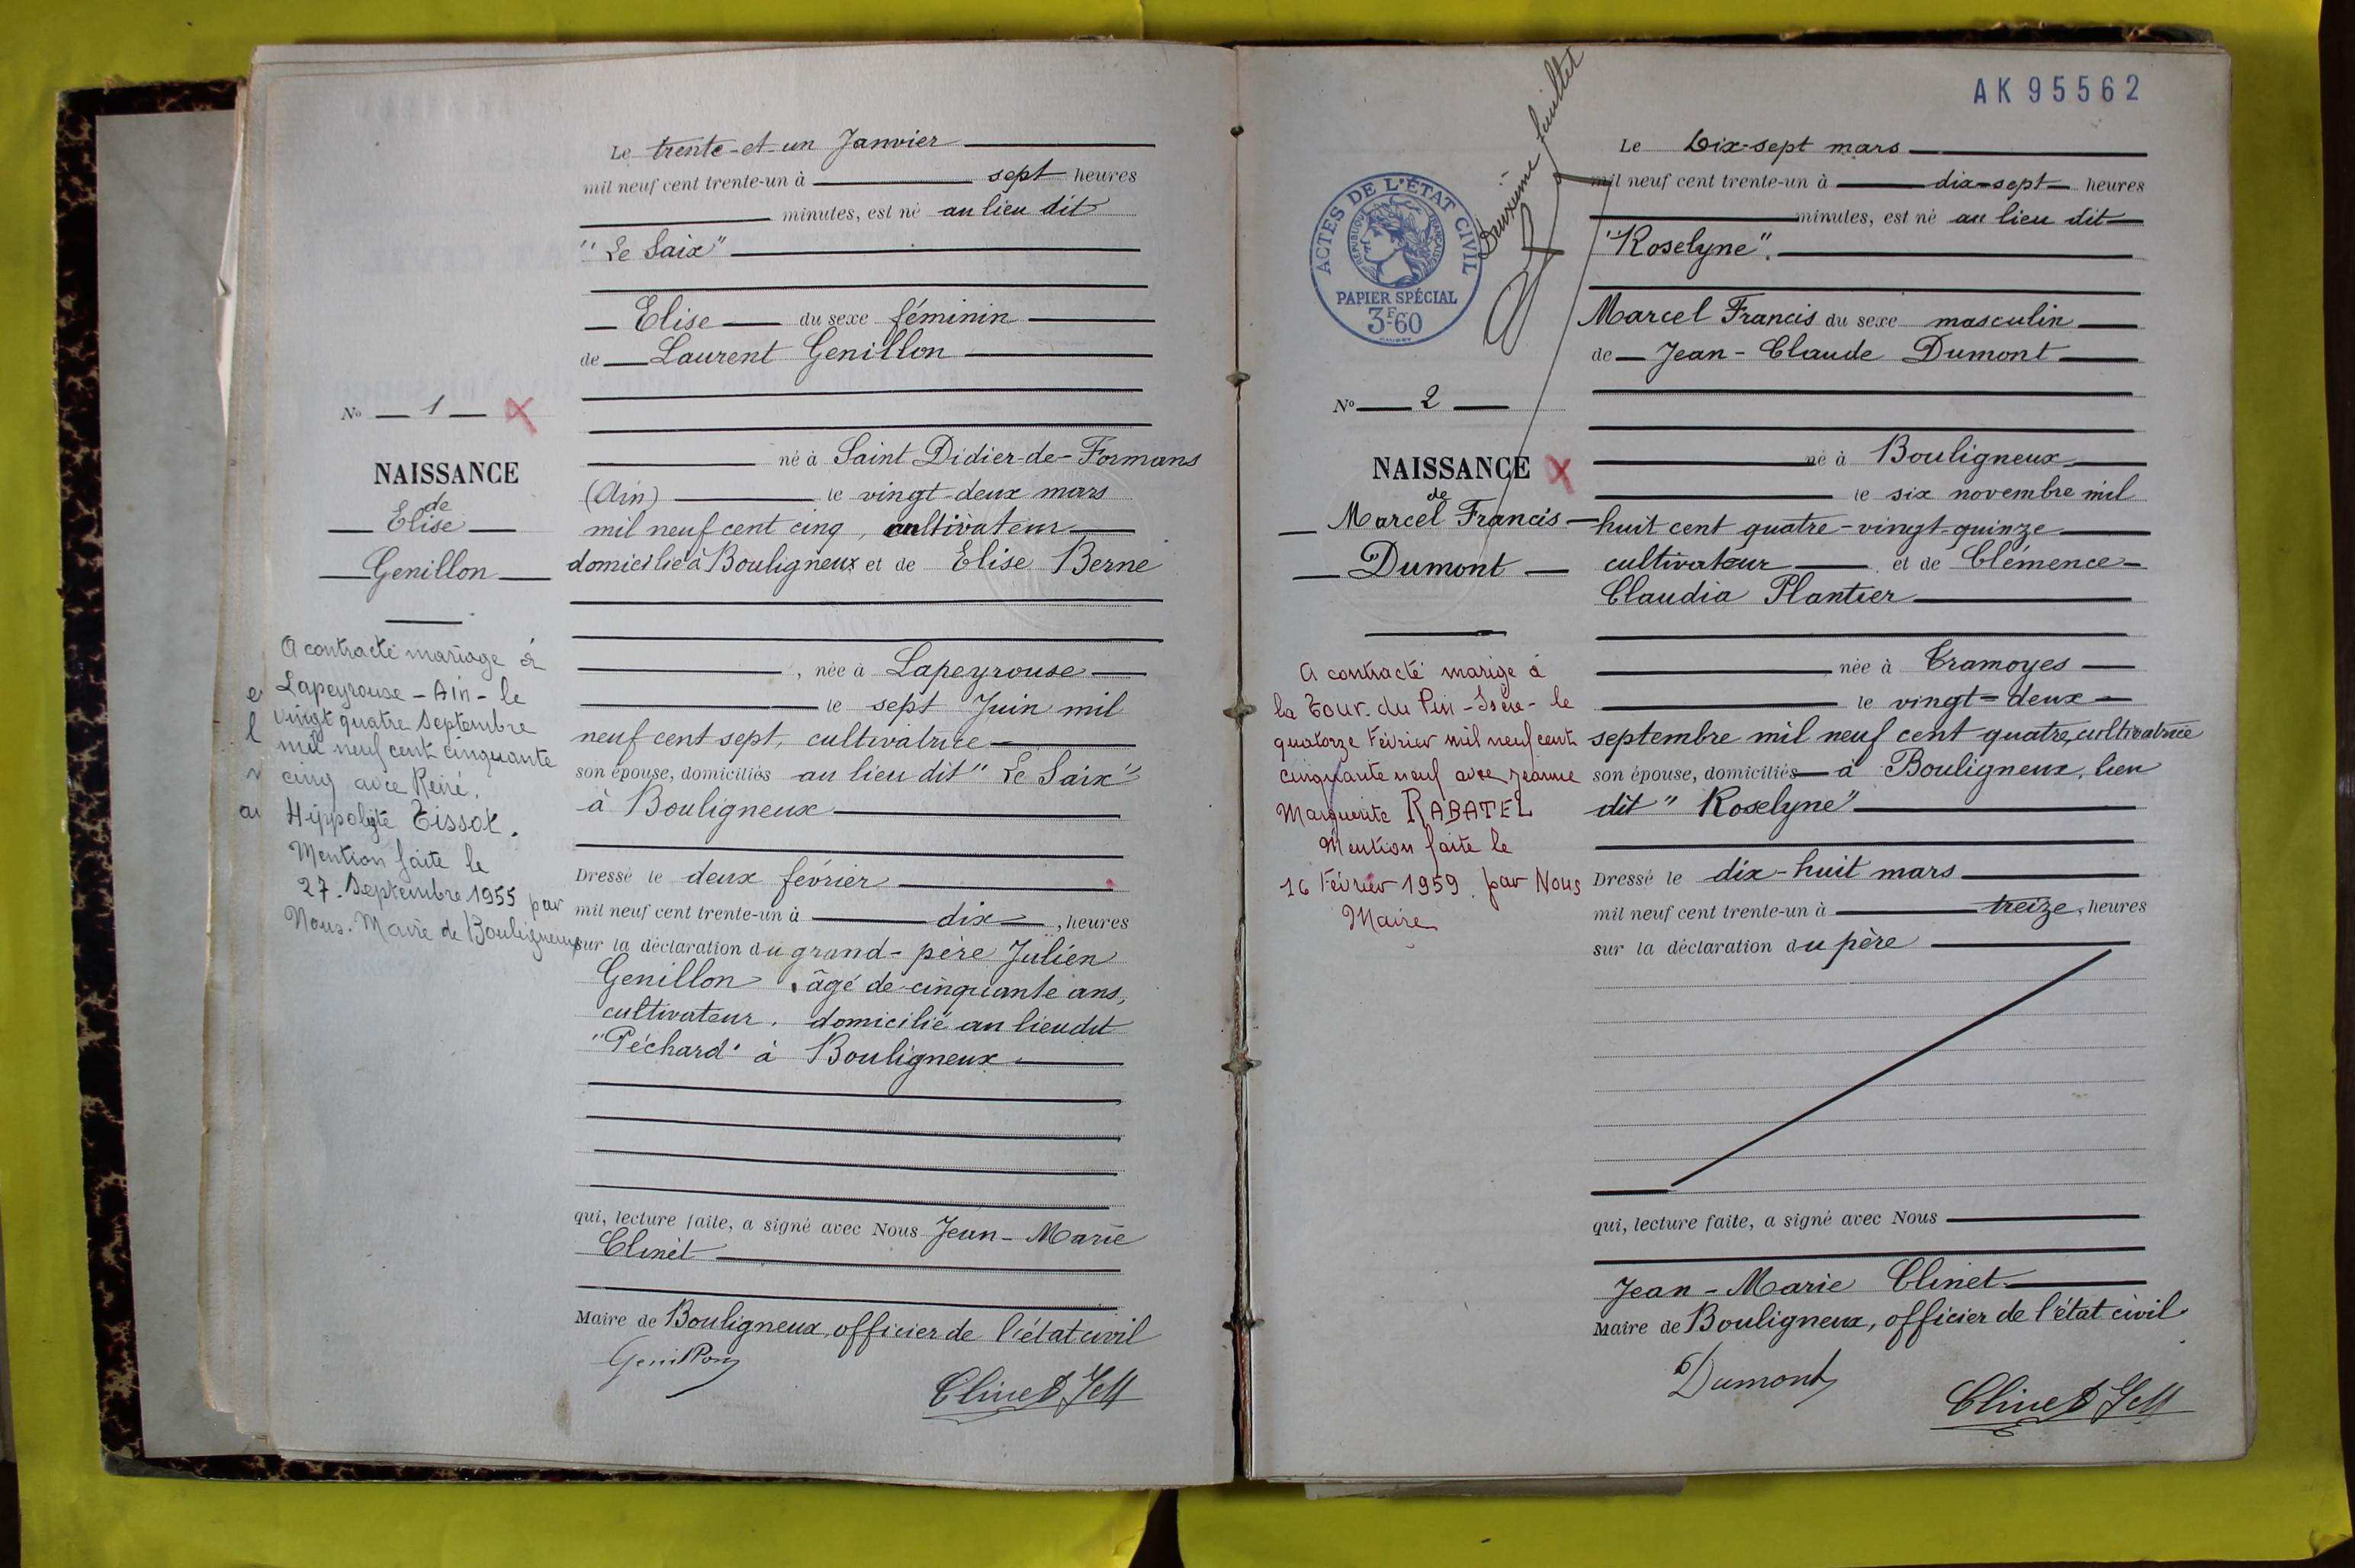 Le trente-et-un Janvier
mil neuf cent trente-un à sept heures
minutes, est né au lieu dit
"Le Saix"
Elise du sexe féminin
de Laurent Genillon
né à Saint Didier-de-Formans
(Ain) le vingt-deux mars
mil neuf cent cinq, cultivateur
domicilié à Bouligneux et de Elise Berne
, née à Lapeyrouse
le sept Juin mil
neuf cent sept, cultivatrice
son épouse, domiciliés au lieu dit "Le Saix"
à Bouligneux
Dressé le deux février
mil neuf cent trente-un à dix, heures
sur la déclaration du grand-père Julien
Genillon, âgé de cinquante ans,
cultivateur, domicilié au lieu dit
"Péchard" à Bouligneux
qui, lecture faite, a signé avec Nous Jean-Marie
Clinet
Maire de Bouligneux, officier de l'état civil
Genillon
Clinet JM
No 1
NAISSANCE
de
Elise
Genillon
A contracté mariage à
Lapeyrouse - Ain - le
vingt quatre Septembre
mil neuf cent cinquante
cinq avec René,
Hippolyte Tissot.
Mention faite le
27 Septembre 1955 par
Nous. Maire de Bouligneux
AK 95562
Deuxième feuillet
ACTES DE L'ÉTAT CIVIL
RÉPUBLIQUE FRANÇAISE
PAPIER SPÉCIAL
3F60
No 2
NAISSANCE
de
Marcel Francis
Dumont
A contracté marige à
la Tour-du Pin - Isère - le
quatorze Février mil neuf cent
cinquante neuf avec Jeanne
Marguerite RABATEL
Mention faite le
16 Février 1959 par Nous
Maire
Le Dix-sept mars
mil neuf cent trente-un à dix-sept heures
minutes, est né au lieu dit
"Roselyne".
Marcel Francis du sexe masculin
de Jean-Claude Dumont
né à Bouligneux
le six novembre mil
huit cent quatre-vingt-quinze
cultivateur et de Clémence
Claudia Plantier
née à Tramoyes
le vingt-deux
septembre mil neuf cent quatre, cultivatrice
son épouse, domiciliés à Bouligneux, lieu
dit "Roselyne"
Dressé le dix-huit mars
mil neuf cent trente-un à treize, heures
sur la déclaration du père
qui, lecture faite, a signé avec Nous
Jean-Marie Clinet
Maire de Bouligneux, officier de l'état civil
Dumont
Clinet JM